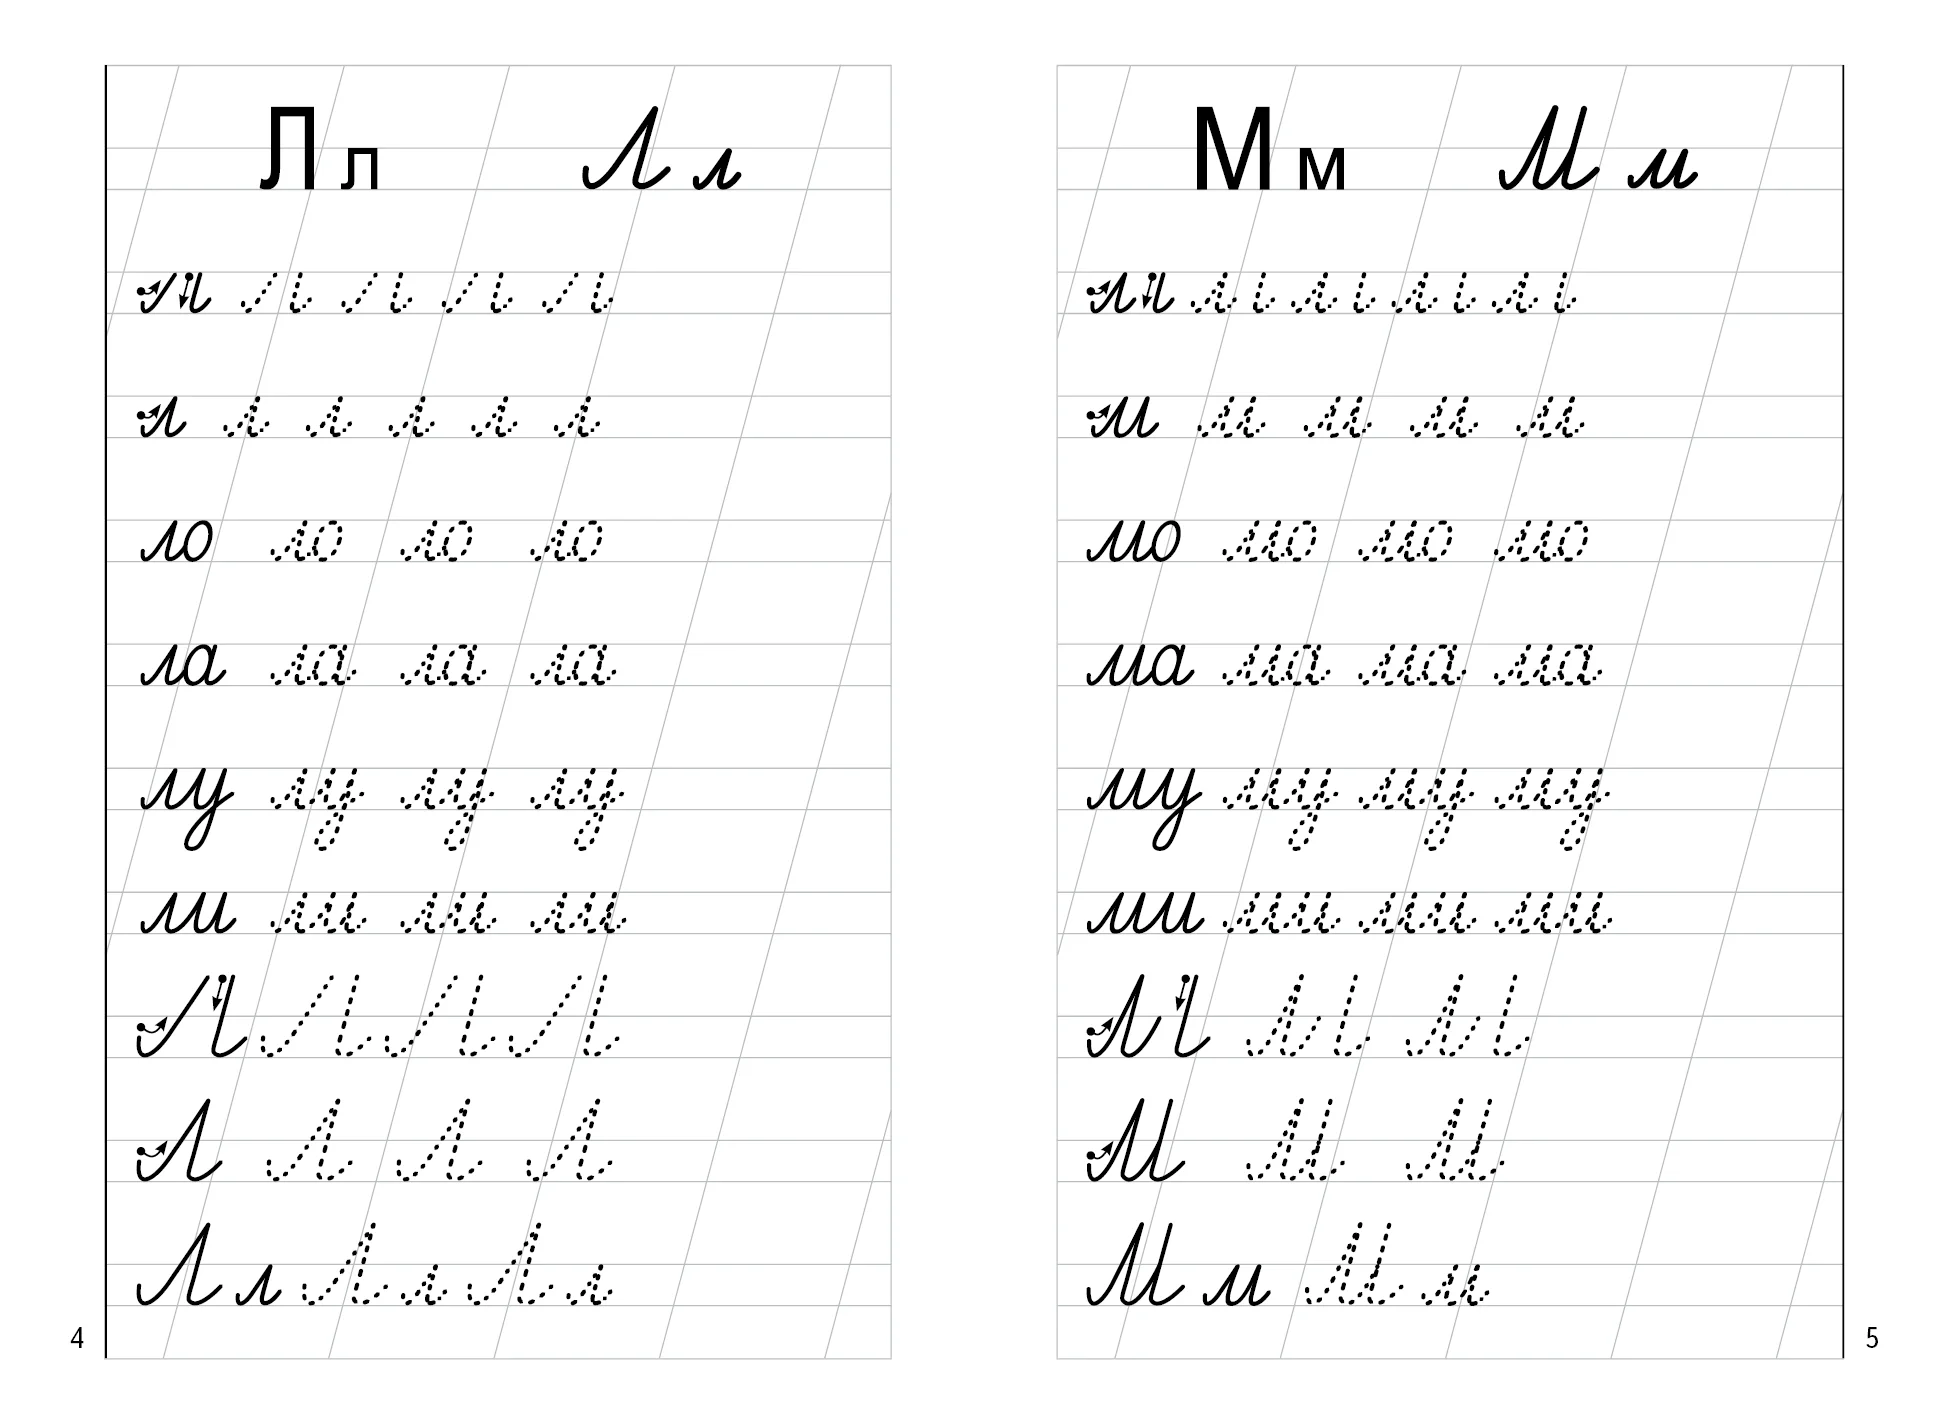 Л л Л л
л л л л л
л л л л л л
ло ло ло ло
ла ла ла ла
лу лу лу лу
ли ли ли ли
Л Л Л Л
Л Л Л Л
Л л Л л Л л
4
М м М м
м м м м м
м м м м м
мо мо мо мо
ма ма ма ма
му му му му
ми ми ми ми
М М М
М М М
М м М м
5